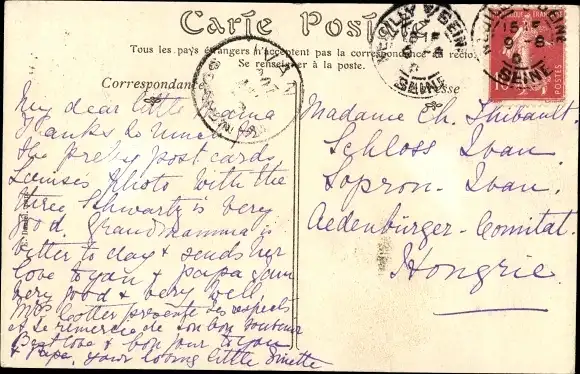 Carte Postale
Tous les pays étrangers n'acceptent pas la correspondance au recto.
Se renseigner à la poste.
Correspondance
Adresse
NEUILLY S/SEINE
15 15
9 8
SEINE
10
My dear little Mama
Thanks so much
the pretty post cards
Louise's photo with the
three Schwartz is very
good. Grandmamma is
better to day & sends her
love to you & papa. I am
very good & very well
présente ses respects
et se remercie de son bon souvenir
Best love & bonjour to you
& Papa. Your loving little Ninette
Madame Ch. Thibault.
Schloss Ivan
Sopron-Ivan.
Oedenburger-Comitat.
Hongrie.